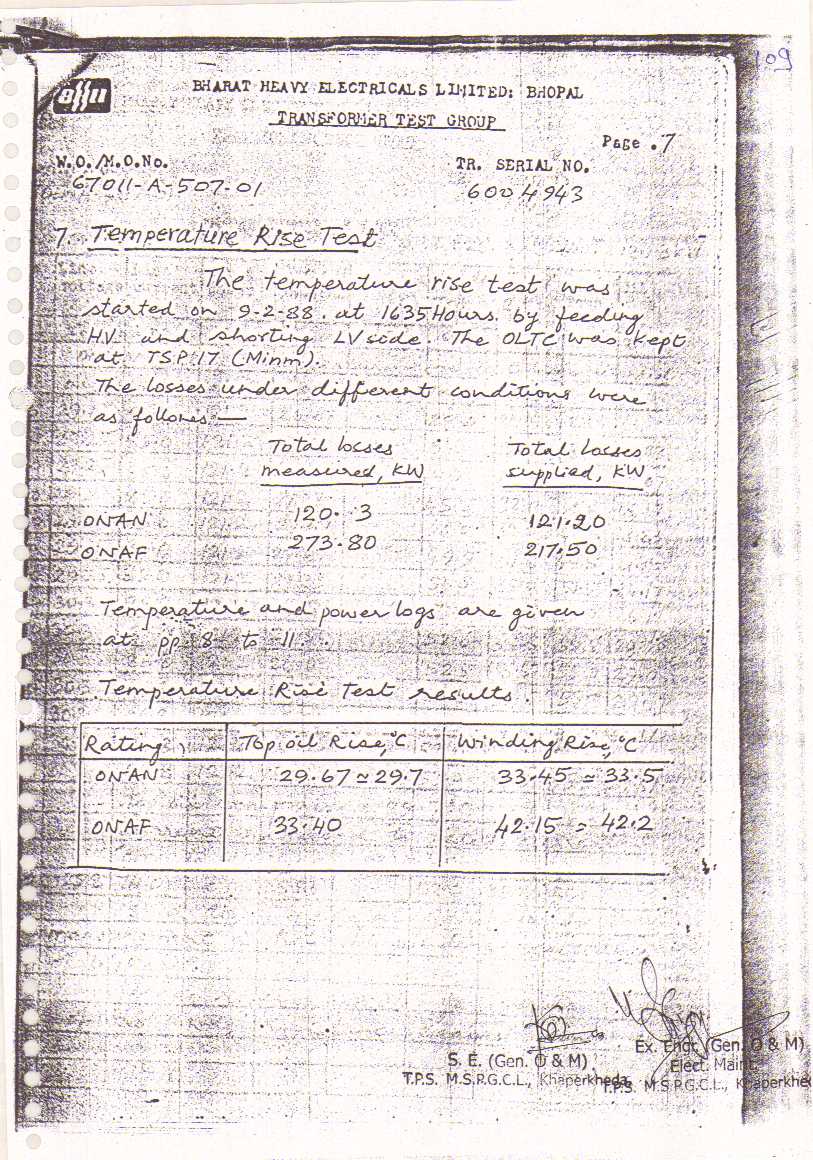 109
BHARAT HEAVY ELECTRICALS LIMITED: BHOPAL
TRANSFORMER TEST GROUP
Page .7
W.O./M.O.No.
67011-A-507-01
TR. SERIAL NO.
6004943
7. Temperature Rise Test
The temperature rise test was
started on 9-2-88. at 1635 Hours. by feeding
HV and shorting LV side. The OLTC was kept
at TSP 17 (Minm).
The losses under different conditions were
as follows —
Total losses measured, KW
Total losses supplied, KW
ONAN 120. 3 121.20
ONAF 273.80 217.50
Temperature and power logs are given
at pp 8 to 11.
Temperature Rise Test results.
Rating Top oil Rise, °C Winding Rise, °C
ONAN 29.67 ≈ 29.7 33.45 ≈ 33.5
ONAF 33.40 42.15 = 42.2
S. E. (Gen. O & M)
T.P.S. M.S.P.G.C.L., Khaperkheda
Ex. Engr. (Gen. O & M)
Elect. Maint.
T.P.S. M.S.P.G.C.L., Khaperkhe